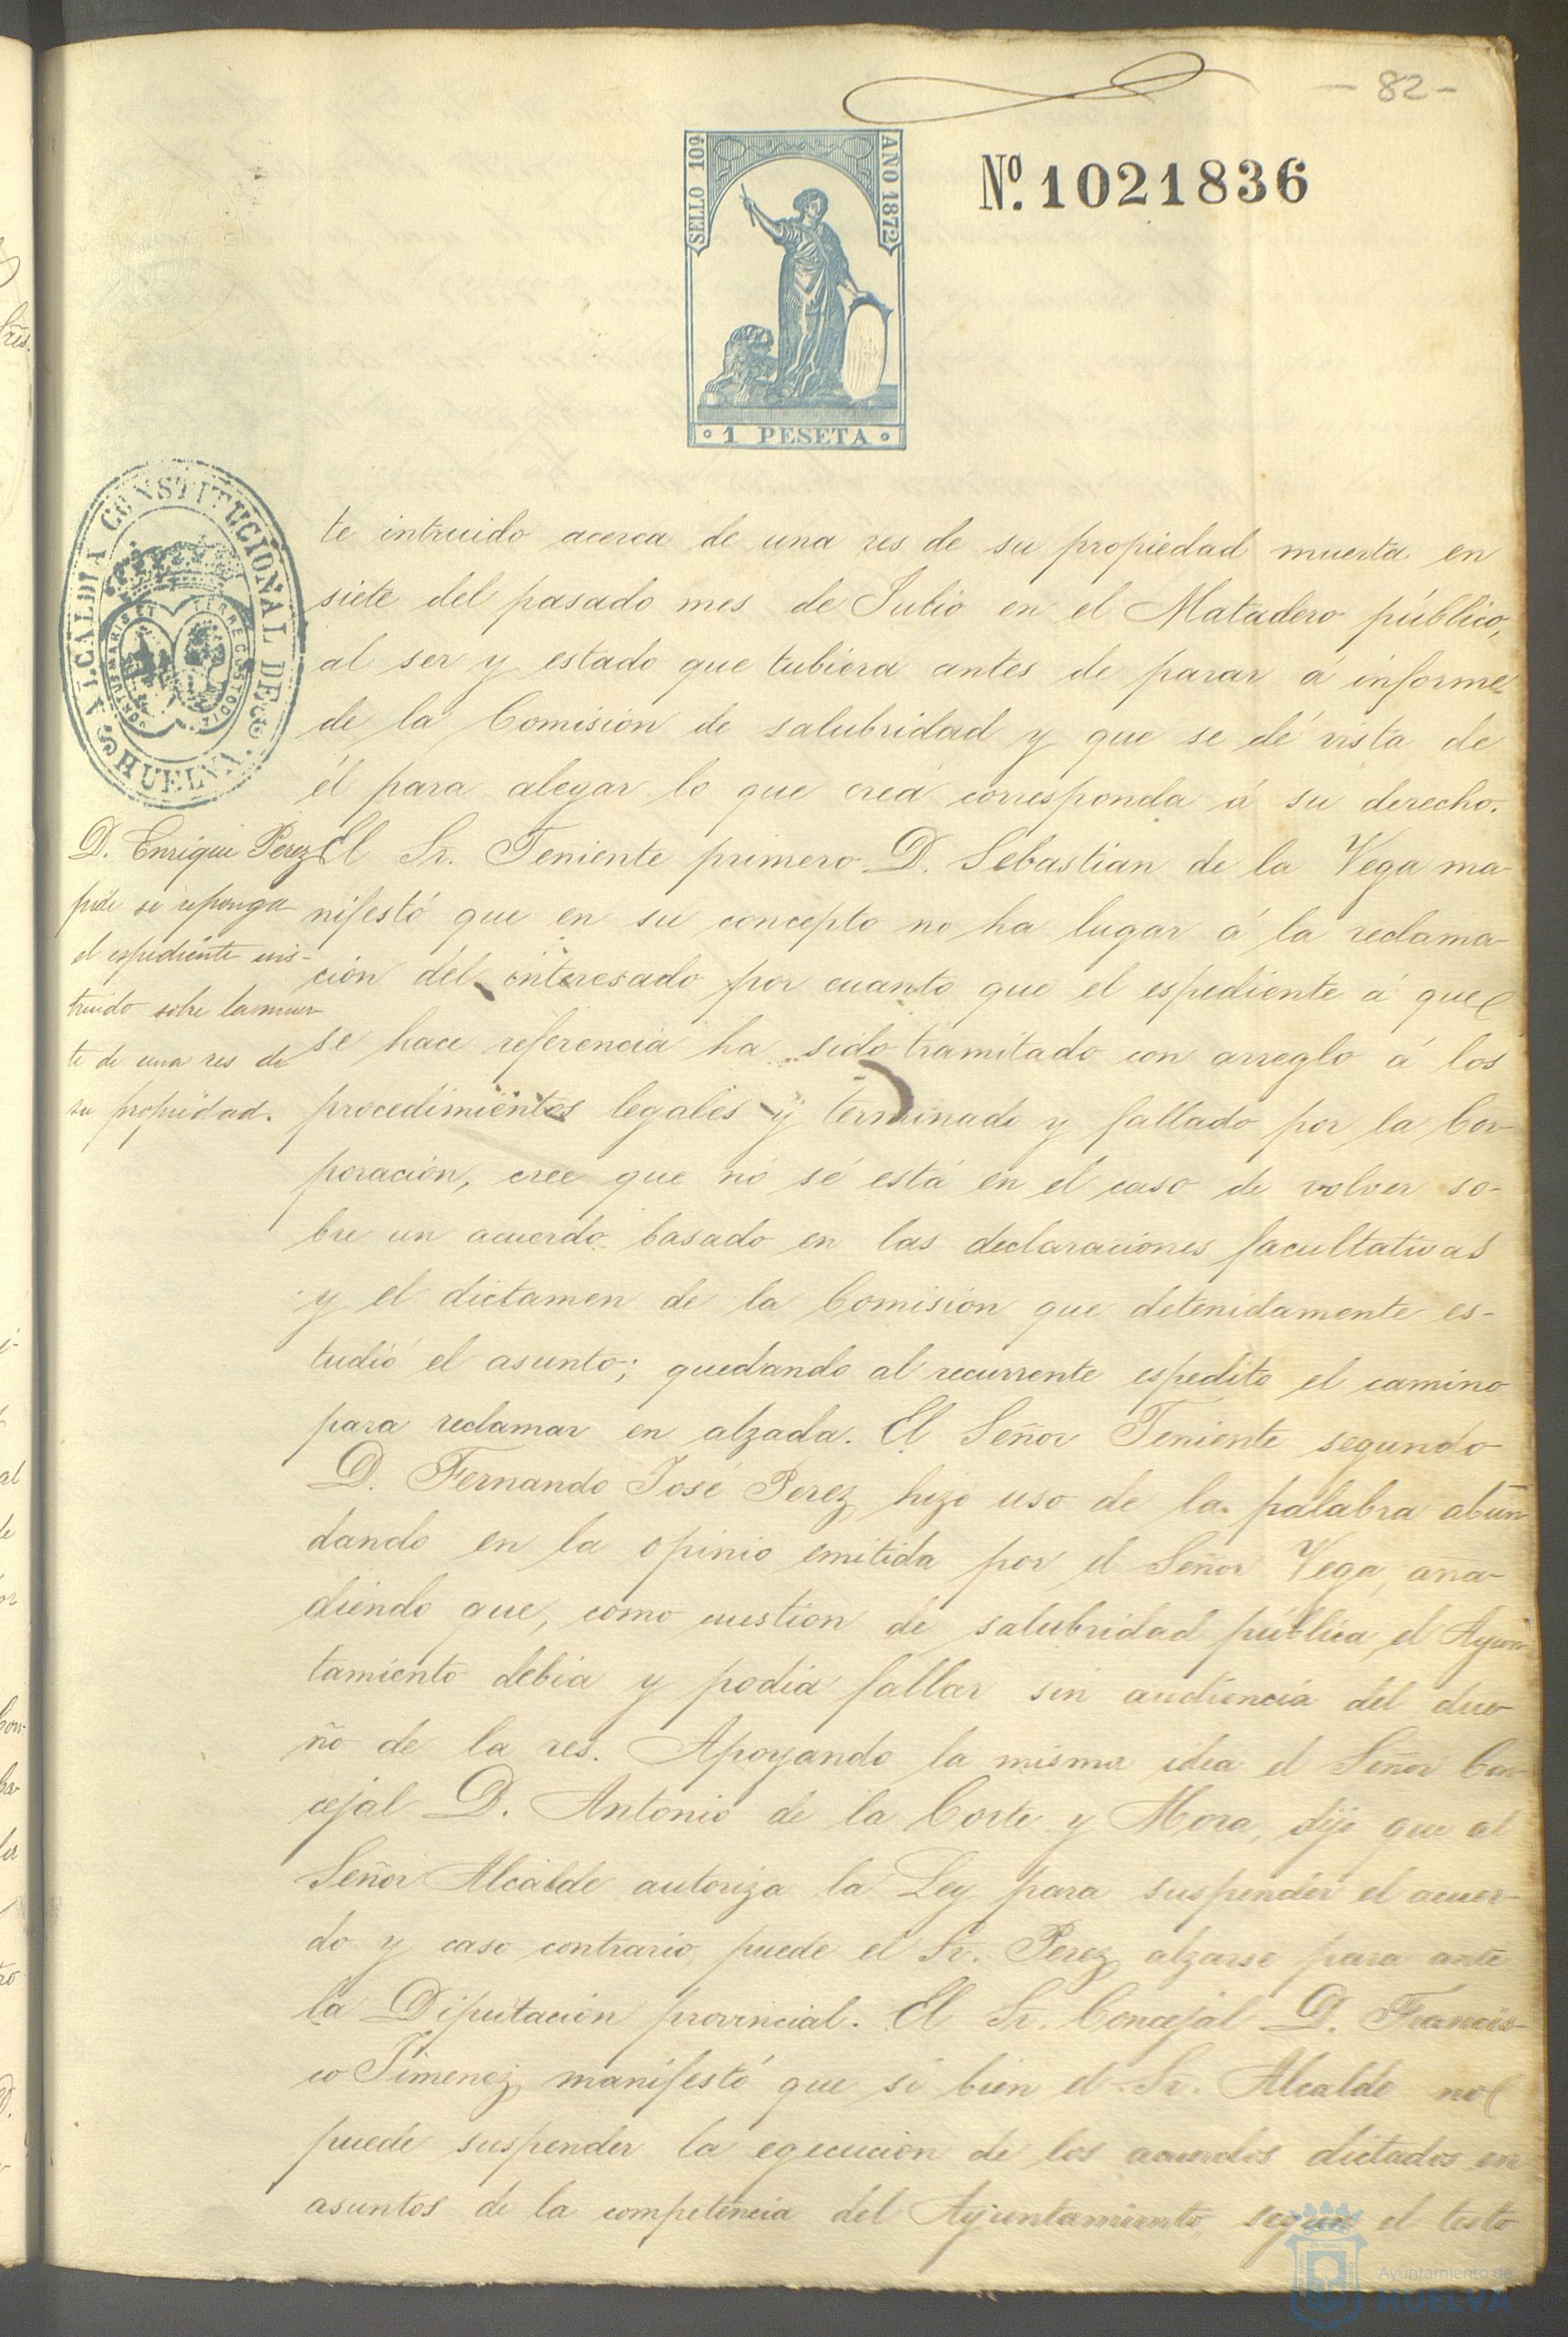 - 82 -
SELLO 10º
AÑO 1872
Nº. 1021836
1 PESETA
ALCALDIA CONSTITUCIONAL DE HUELVA.
PORTUS MARIS ET TERRE CUSTODIA
te intruido acerca de una res de su propiedad muerta en
siete del pasado mes de Julio en el Matadero público,
al ser y estado que tubiera antes de parar á informe
de la Comision de salubridad y que se dé vista de
él para alegar lo que crea corresponda á su derecho.
D. Enrique Perez
pide se reponga
el espediente ins-
truido sobre la muer-
te de una res de
su propiedad.
El Sr. Teniente primero D. Sebastian de la Vega ma-
nifestó que en su concepto no ha lugar á la reclama-
ción del interesado por cuanto que el espediente á que
se hace referencia ha sido tramitado con arreglo á los
procedimientos legales y terminado y fallado por la Cor-
poración, cree que no se está en el caso de volver so-
bre un acuerdo basado en las declaraciones facultativas
y el dictamen de la Comisión que detenidamente es-
tudió el asunto; quedando al recurrente espedito el camino
para reclamar en alzada. El Señor Teniente segundo
D. Fernando José Perez hizo uso de la palabra abun
dando en la opinio emitida por el Señor Vega, aña-
diendo que, como cuestion de salubridad pública, el Ayun
tamiento debia y podia fallar sin audiencia del due-
ño de la res. Apoyando la misma idea el Señor Con-
cejal D. Antonio de la Corte y Mora, dijo que al
Señor Alcalde autoriza la Ley para suspender el acuer-
do y caso contrario, puede el Sr. Perez alzarse para ante
la Diputación provincial. El Sr. Concejal D. Francis-
co Jimenez manifestó que si bien el Sr. Alcalde no
puede suspender la egecucion de los acuerdos dictados en
asuntos de la competencia del Ayuntamiento, segun el testo
Ayuntamiento de
HUELVA